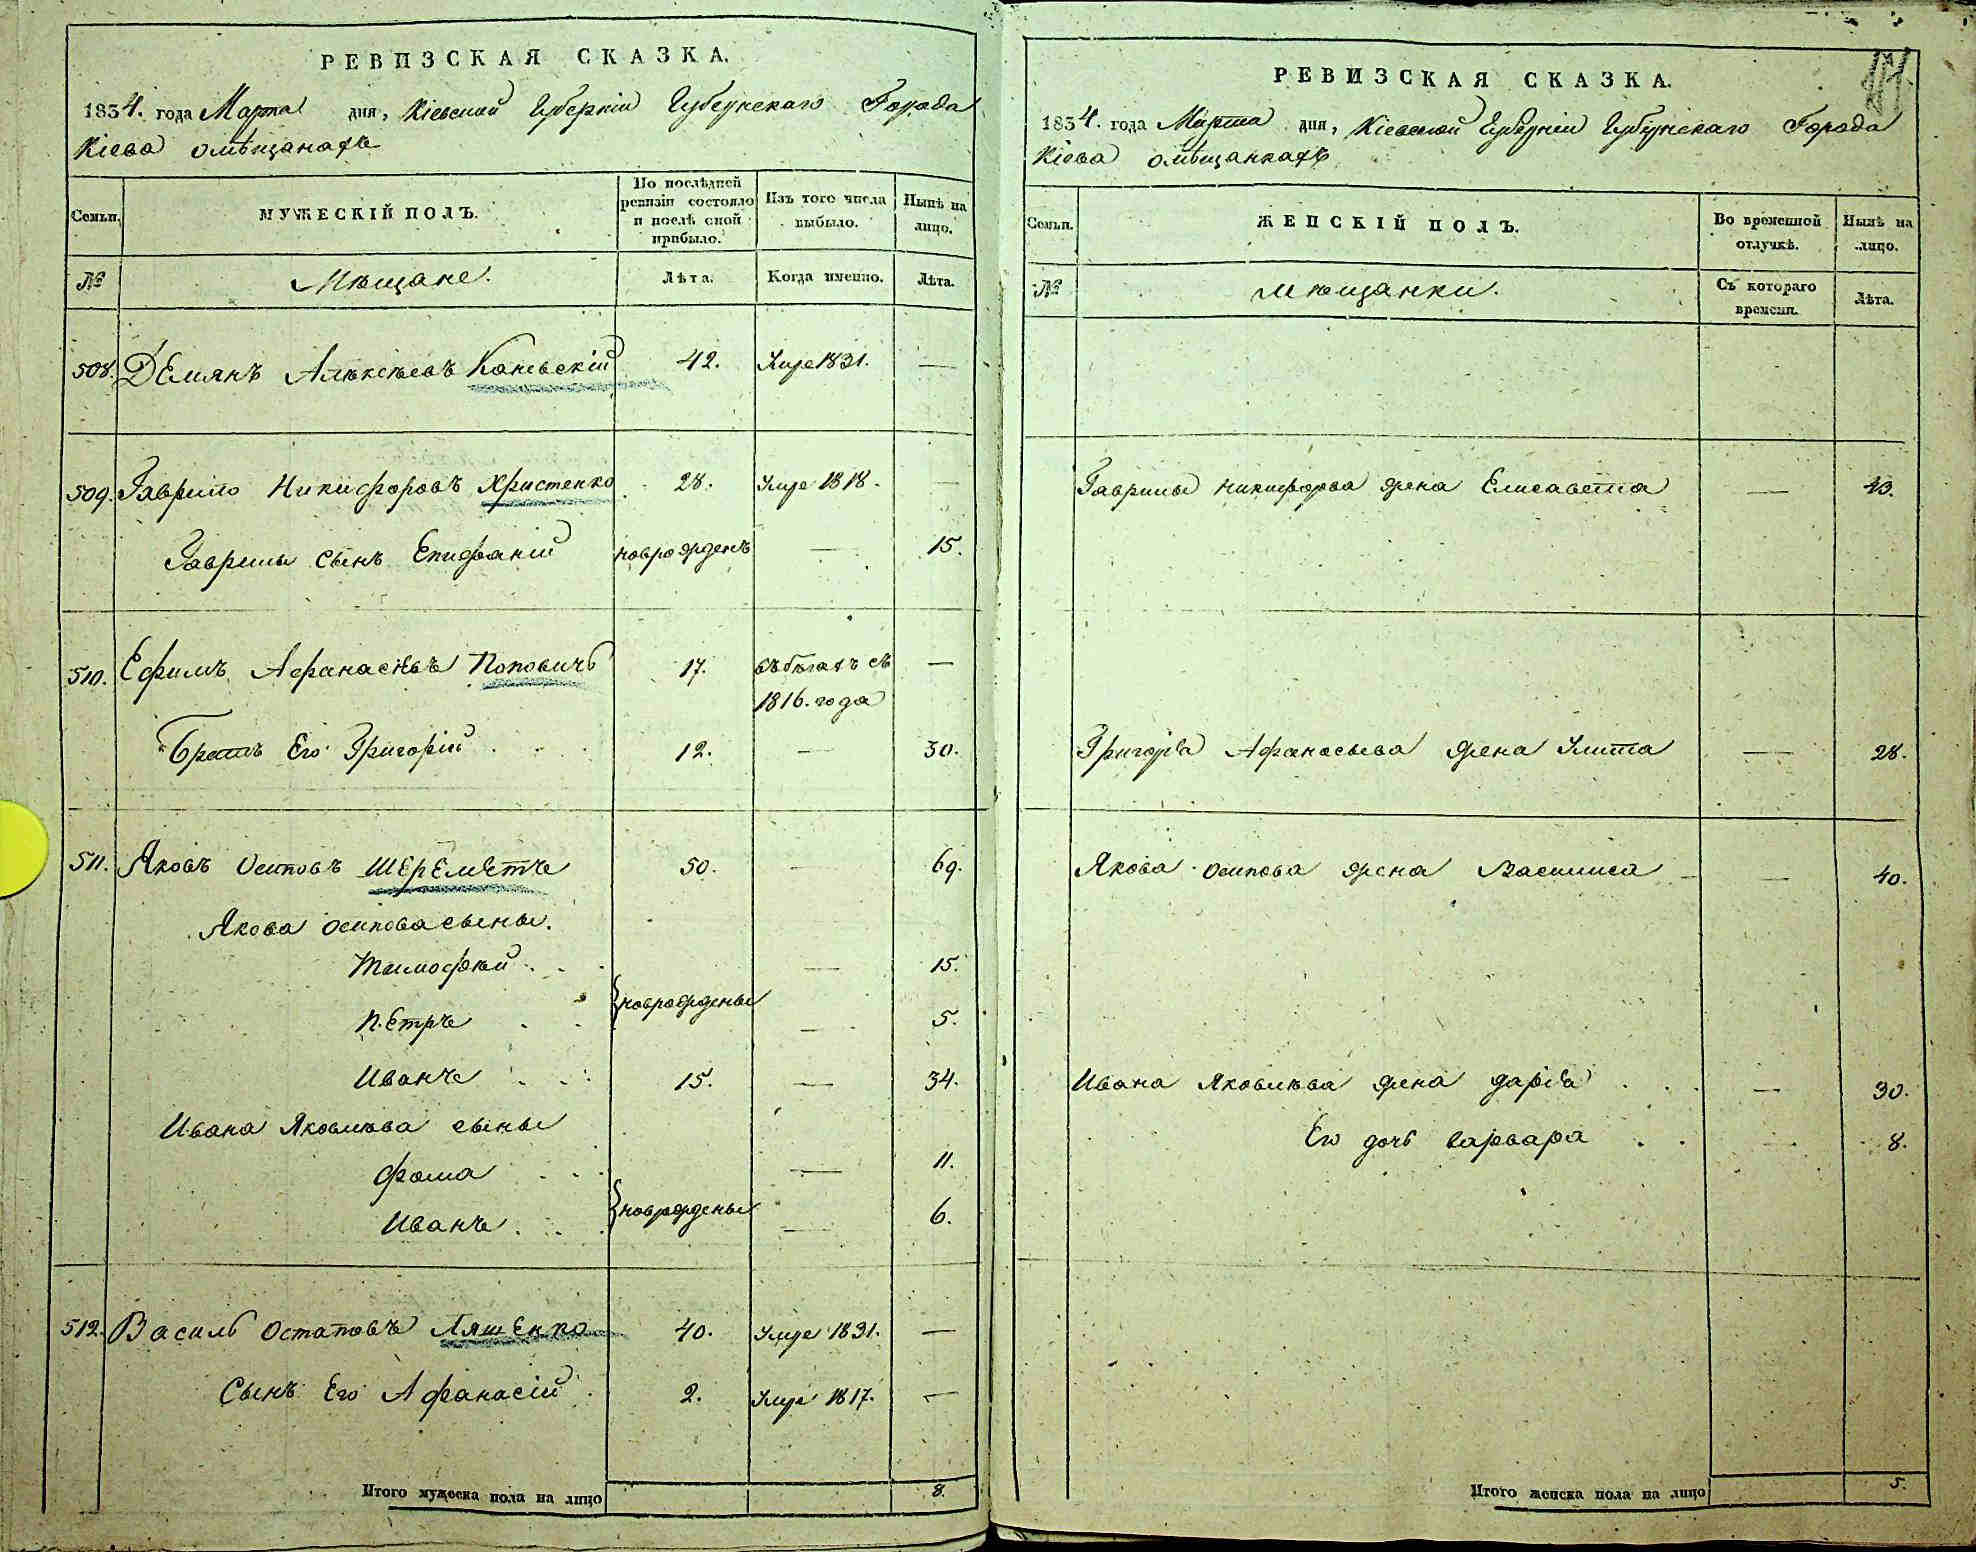 РЕВИЗСКАЯ СКАЗКА.
1834. года Марта дня, Кіевской Губерніи Губернскаго Города
Кіева о мѣщанахъ
Семьи.
МУЖЕСКІЙ ПОЛЪ.
По послѣдней ревизіи состояло и послѣ оной прибыло.
Изъ того числа выбыло.
Нынѣ на лицо.
№
Мѣщане.
Лѣта.
Когда именно.
Лѣта.
508. Демянъ Алексѣевъ Каневскій 42. Умре 1831. —
509. Гаврило Никифоровъ Христенко 28. Умре 1818.
Гаврилы сынъ Епифаній новорожденъ — 15.
510. Ефимъ Афанасіевъ Поповичъ 17. въ бѣгахъ съ —
1816. года
Братъ Его Григорій 12. — 30.
511. Яковъ Осиповъ Шереметъ 50. — 69.
Якова Осипова сыны.
Тимофѣй — 15.
новорождены
Петръ — 5.
Иванъ 15. — 34.
Ивана Яковлѣва сыны
Фома — 11.
новорождены
Иванъ — 6.
512. Василь Остаповъ Ляшенко 40. Умре 1831. —
Сынъ Его Афанасій 2. Умре 1817. —
Итого мужеска пола на лицо 8.
РЕВИЗСКАЯ СКАЗКА.
1834. года Марта дня, Кіевской Губерніи Губернскаго Города
Кіева о мѣщанкахъ
Семьи.
ЖЕНСКІЙ ПОЛЪ.
Во временной отлучкѣ.
Нынѣ на лицо.
№
Мѣщанки.
Съ котораго времени.
Лѣта.
Гаврилы Никифорова жена Елисавета — 43.
Григорія Афанасьева жена Улита — 28.
Якова Осипова жена Василиса — 40.
Ивана Яковлѣва жена Дарія — 30.
Его дочь Варвара — 8.
Итого женска пола на лицо 5.